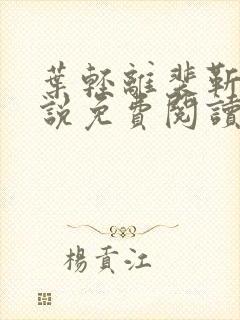 葉輕離裴靳
說免費閱讀
楊貢江